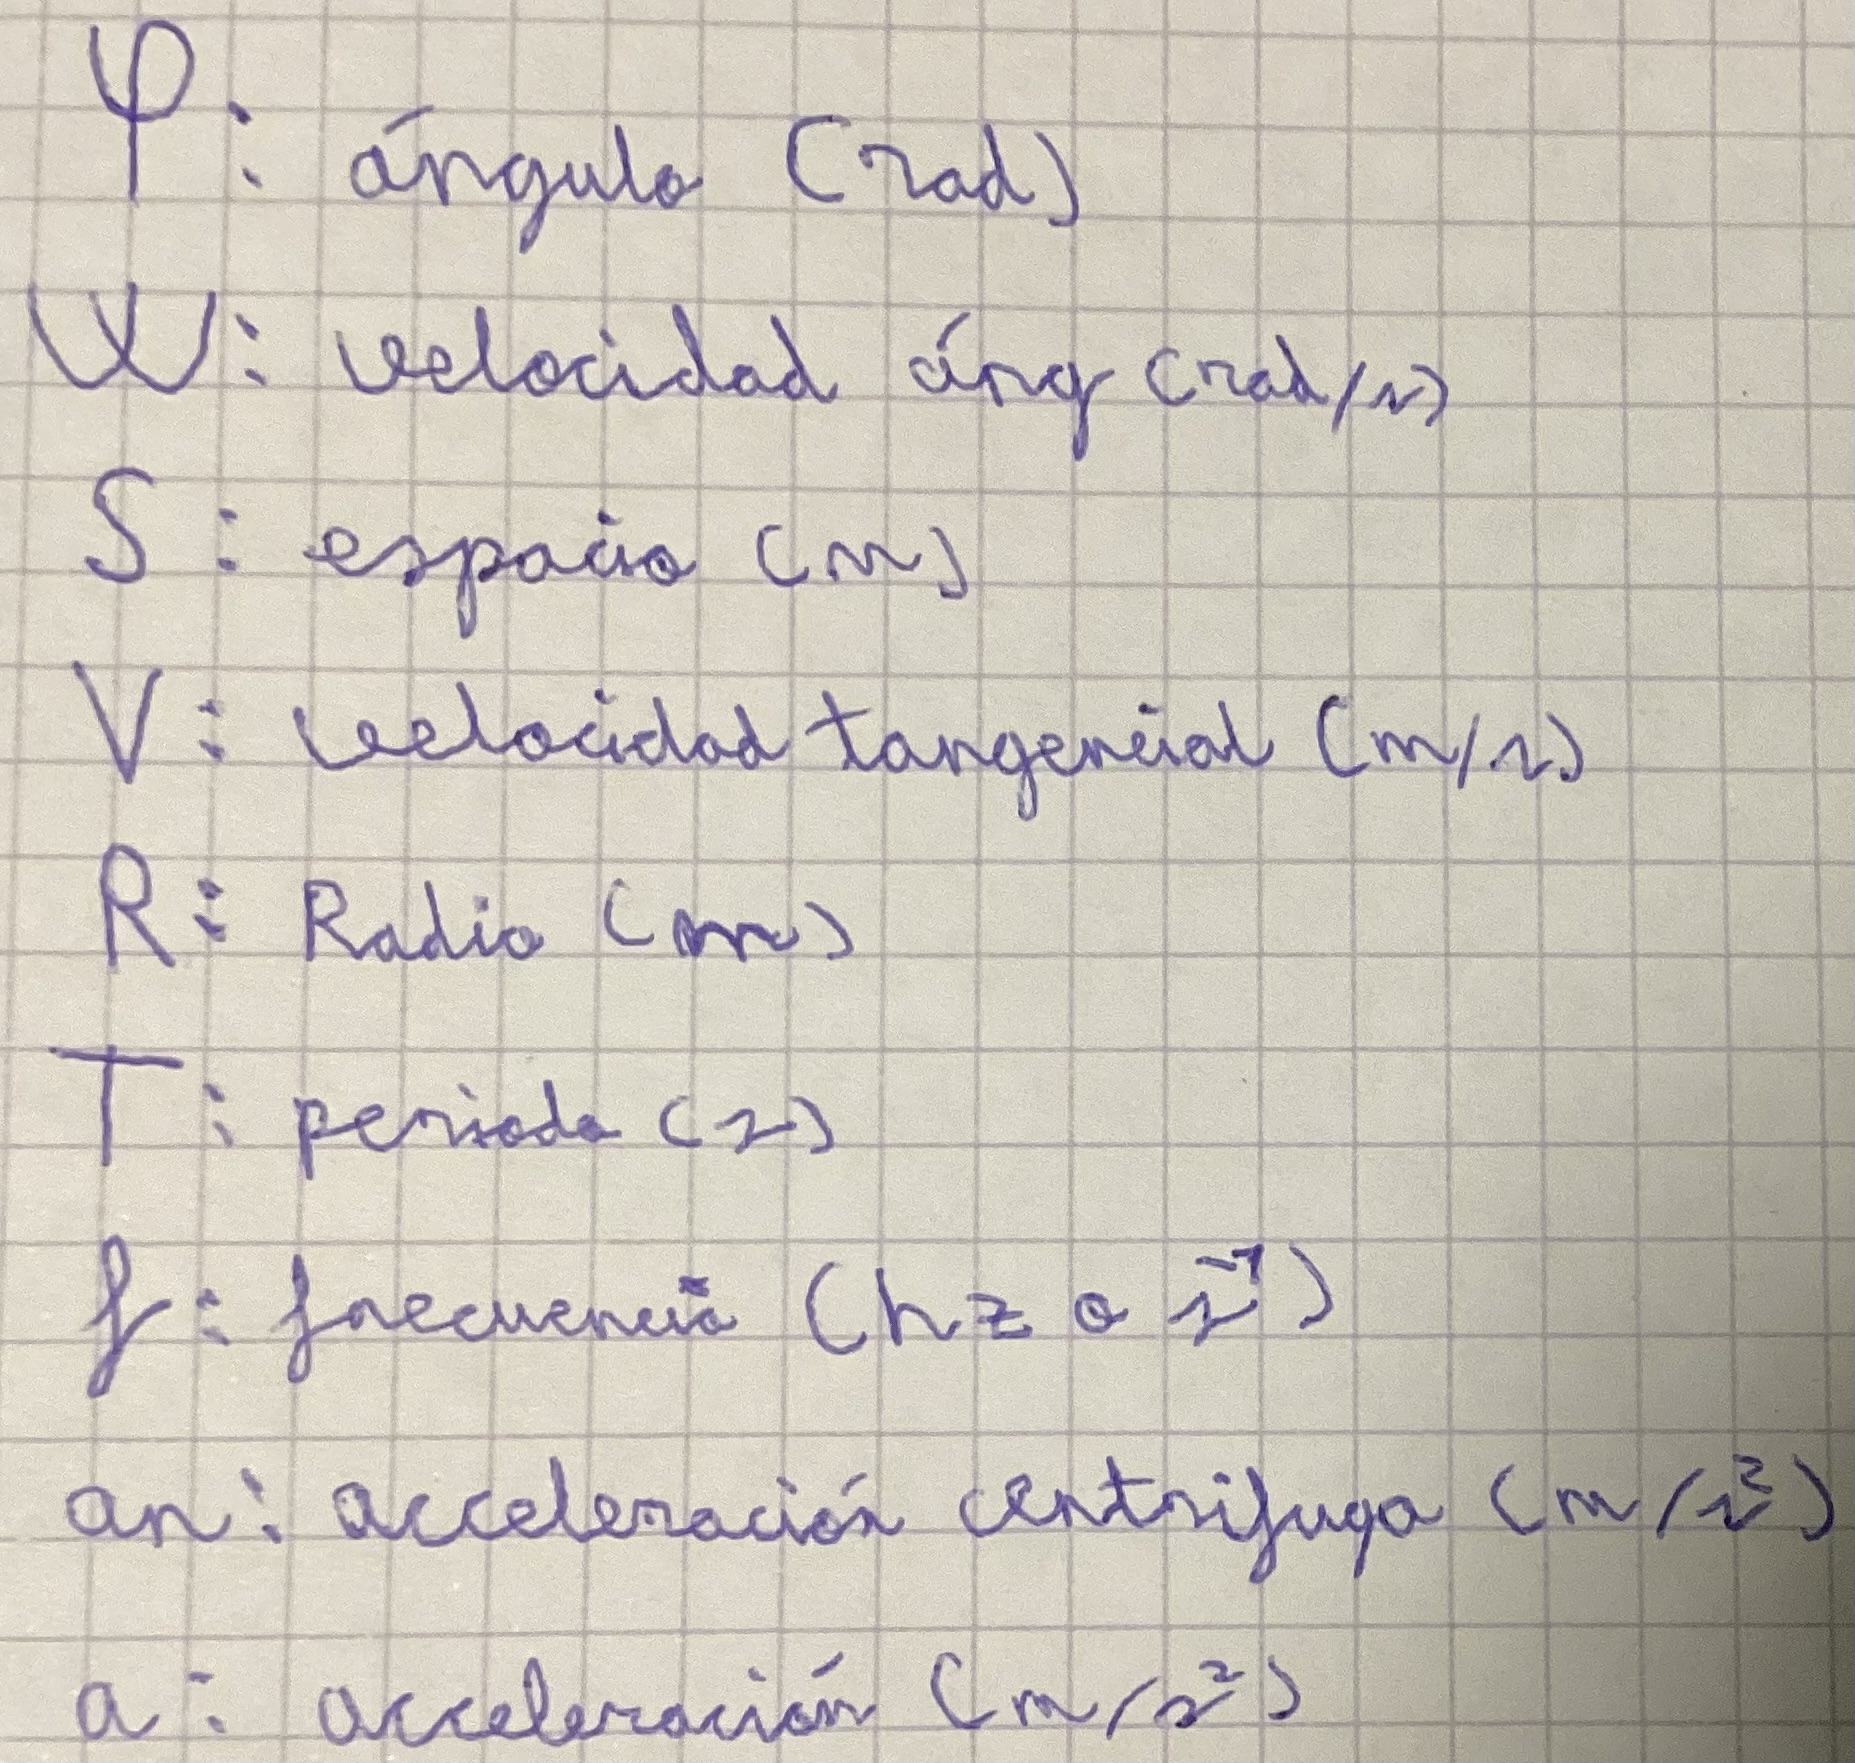 φ: ángulo (rad)
W: velocidad áng (rad/s)
S: espacio (m)
V: velocidad tangencial (m/s)
R: Radio (m)
T: periodo (s)
f: frecuencia (hz o s⁻¹)
an: acceleración centrifuga (m/s²)
a: acceleración (m/s²)